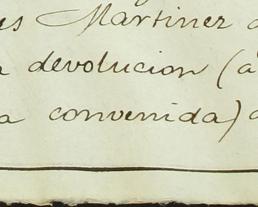 us Martinez
a devolucion (a
a convenida) a